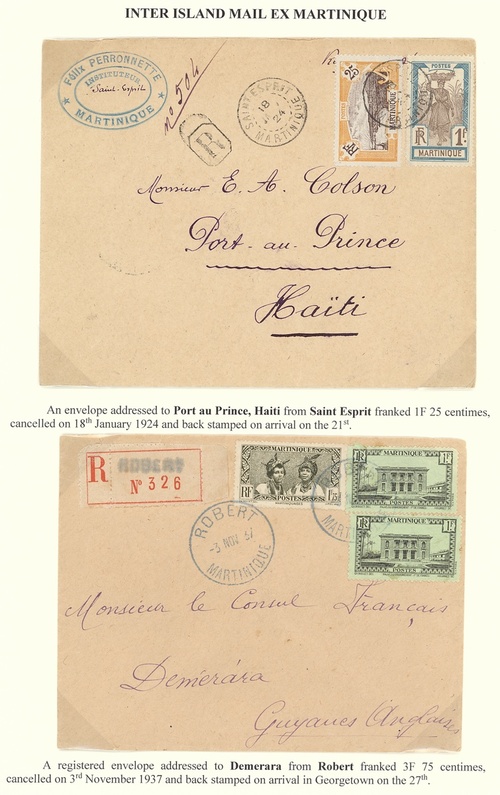 INTER ISLAND MAIL EX MARTINIQUE
Félix PERRONNETTE
INSTITUTEUR
Saint-Esprit
MARTINIQUE
No 504
R
SAINT ESPRIT
18
24
MARTINIQUE
25
MARTINIQUE
RF
POSTES
RF 1F
MARTINIQUE
Monsieur E. A. Colson
Port-au-Prince
Haïti
An envelope addressed to Port au Prince, Haiti from Saint Esprit franked 1F 25 centimes,
cancelled on 18th January 1924 and back stamped on arrival on the 21st.
R ROBERT
No 326
ROBERT
-3 NOV 37
MARTINIQUE
MARTINIQUE
RF POSTES 1F75
MARTINIQUE 1F
POSTES
MARTINIQUE 1F
POSTES
Monsieur le Consul Français
Demerára
Guyanes Anglaises
A registered envelope addressed to Demerara from Robert franked 3F 75 centimes,
cancelled on 3rd November 1937 and back stamped on arrival in Georgetown on the 27th.